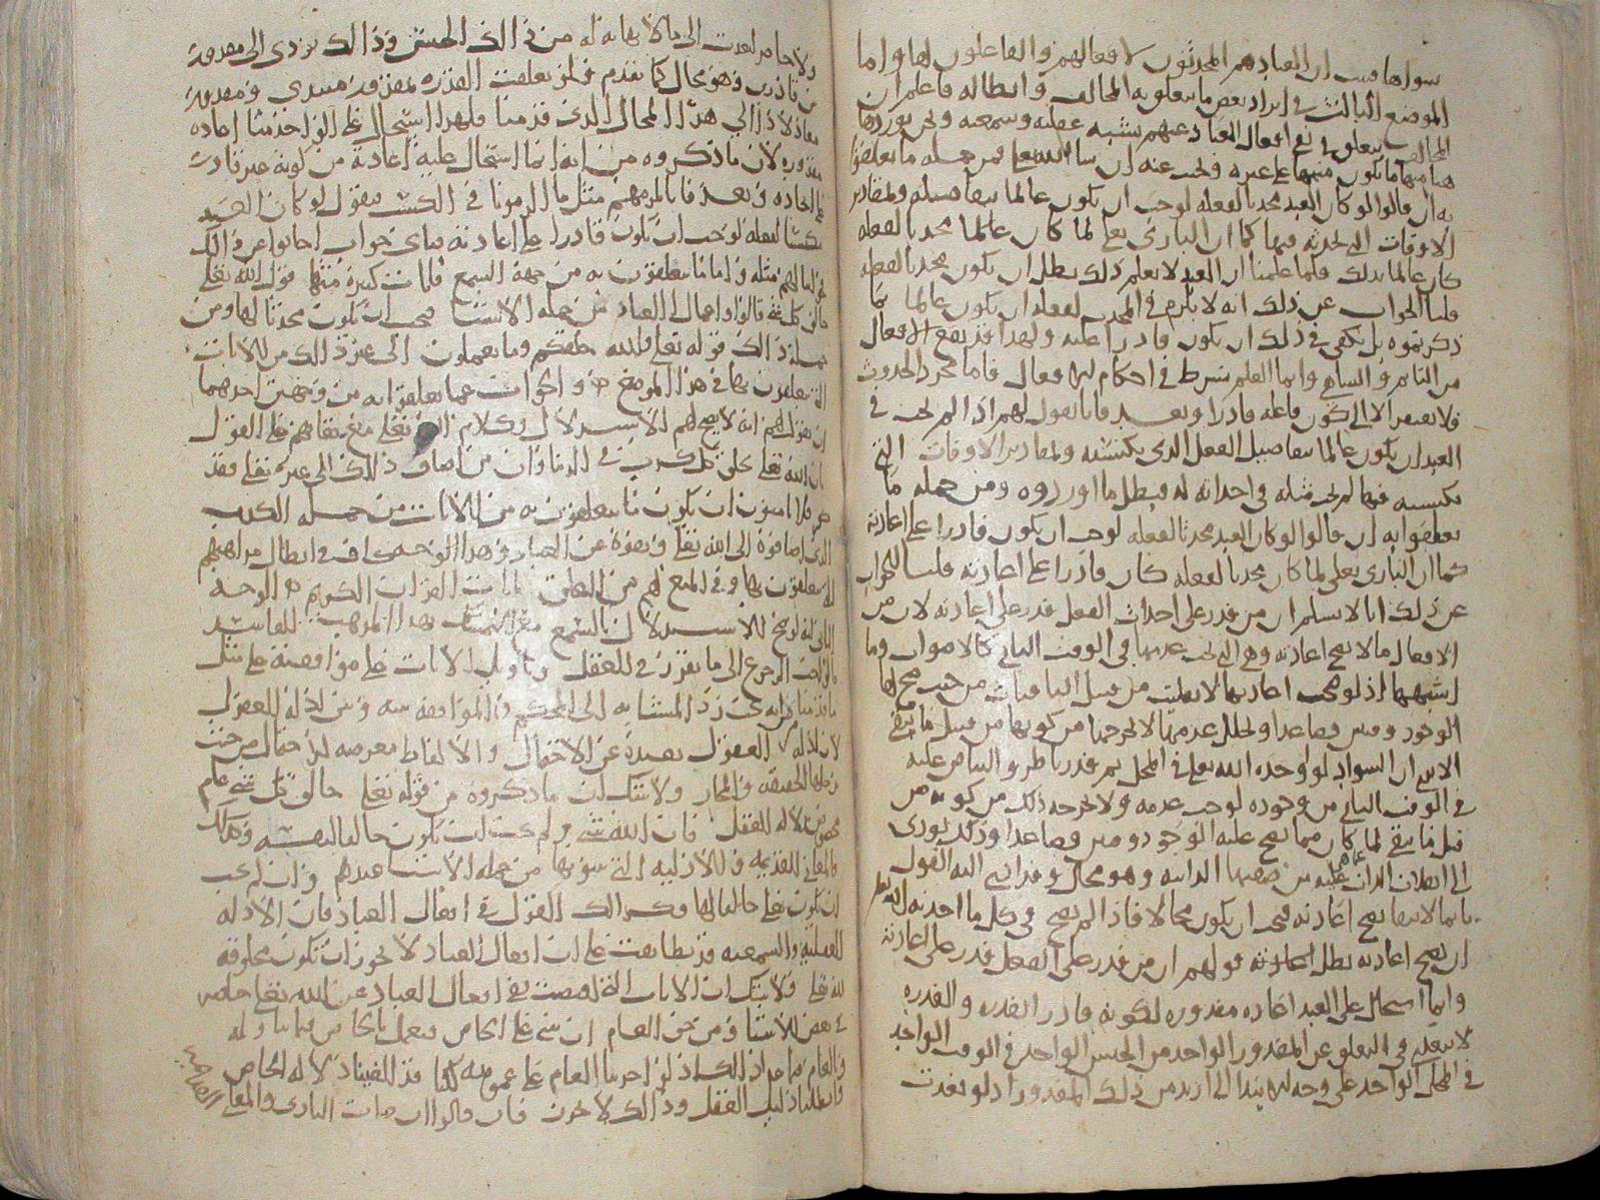 سواها فثبت ان العباد هم المحدثون لافعالهم والفاعلون لها واما
الموضع الثالث في ايراد بعض ما يتعلق به المخالف وابطاله فاعلم ان
المخالف يتعلق في نفي افعال العباد عنهم بشبه عقلية وسمعية ونحن نورد
هنا منها ما يكون منبها على غيره ونجيب عنه ان شا الله تعالى فمن جملة ما تعلقوا
به ان قالوا لو كان العبد محدثا لفعله لوجب ان يكون عالما بتفاصيله ولمقادير
الاوقات التي تحدثه فيها كما ان الباري تعالى لما كان عالما محدثا لفعله
كان عالما بذلك فلما علمنا ان العبد لا يعلم ذلك بطل ان يكون محدثا لفعله
قلنا الجواب عن ذلك انه لا يلزم في المحدث لفعله ان يكون عالما بما
ذكرتموه بل يكفي في ذلك ان يكون قادرا عليه ولهذا قد يقع الافعال
من النايم والساهي وانما العلم شرط في احكام الافعال فاما مجرد الحدوث
فلا يفتقر الا الى كون فاعله قادرا وبعد فانا نقول لهم اذا لم يجب في
العبد ان يكون عالما بتفاصيل الفعل الذي يكتسبه ولمقادير الاوقات التي
يكتسبه فيها لم يجب مثله في احداثه له فبطل ما اوردوه ومن جملة ما
تعلقوا به ان قالوا لو كان العبد محدثا لفعله لوجب ان يكون قادرا على اعادته
كما ان الباري تعالى لما كان محدثا لفعله كان قادرا على اعادته قلنا الجواب
عن ذلك انا لا نسلم ان من قدر على احداث الفعل قدر على اعادته لان من
الافعال ما لا يصح اعادته وهي التي يجب عدمها في الوقت الثاني كالاصوات وما
اشبهها اذ لو صحت اعادتها لانقلبت من قبيل الباقيات من حيث صح لها
الوجود وقتين فصاعدا وتخلل عدمها لا يخرجها من كونها من قبيل ما يبقى
الا ترى ان السواد لو اوجده الله تعالى في المحل ثم قدرنا طرو البياض عليه
في الوقت الثاني من وجوده لوجب عدمه ولا يخرجه ذلك من كونه من
قبيل ما يبقى لما كان مما يصح عليه الوجود وقتين فصاعدا وذلك يودي
الى انقلاب الذات عما هي عليه من صفتها الذاتية وهو محال وقد ادى اليه القول
بان ما لا يبقى يصح اعادته فيجب ان يكون محالا فاذا لم يصح في كل ما احدثه الله تعالى
ان يصح اعادته بطل قولهم ان من قدر على الفعل قدر على اعادته
وانما استحال على العبد اعادة مقدوره لكونه قادرا بقدرة والقدرة
لا تتعدى في التعلق عن المقدور الواحد من الجنس الواحد في الوقت الواحد
في المحل الواحد على وجه الابتدا الى ازيد من ذلك المقدور اذ لو تعدت
ولا حاصر لتعدت الى ما لا نهاية له من ذلك الجنس وذلك يودي الى مقدور
بين قادرين وهو محال كما تقدم فلو تعلقت القدرة بمقدور مبتدى ومقدور
معاد لادا الى هذا المحال الذي قدمنا فلهذا استحال على الواحد منا اعادة
مقدوره لان ما ذكروه من انه انما استحال عليه اعادته من كونه غير قادر
على ايجاده وبعد فانا نلزمهم مثل ما الزمونا في الكسب فنقول لو كان العبد
مكتسبا لفعله لوجب ان يكون قادرا على اعادته فباي جواب اجابوا عن ذلك
فجوابنا لهم مثله واما ما يتعلقون به من جهة السمع فايات كثيرة منها قول الله تعالى
خالق كل شي قالوا واعمال العباد من جملة الاشيا فيجب ان يكون محدثا لها ومن
جملة ذلك قوله تعالى والله خلقكم وما تعملون الى غير ذلك من الايات
التي يتعلقون بها في هذا الموضع والجواب عما تعلقوا به من وجهين احدهما
ان نقول لهم انه لا يصح لهم الاستدلال بكلام الله تعالى مع بقايهم على القول
بان الله تعالى يخلق كل كذب في الدنيا وان من اضاف ذلك الى غيره تعالى فقد
كفر فلا امنون ان يكون ما يتعلقون به من الايات من جملة الكذب
الذي اضافوه الى الله تعالى ونفوه عن العباد وهذا الوجه كاف في ابطال مذاهبهم
التي يتعلقون بها وفي المنع لهم من التعلق بايات القران الكريم والوجه
الثاني انه لو صح الاستدلال بالسمع مع التمسك بهذا المذهب الفاسد
لكان الواجب الرجوع الى ما تقرر في العقل وتاويل الايات على موافقته على مثل
ما قدمنا من انه يجب رد المتشابه الى المحكم والموافقة بينه وبين ادلة العقول
لان ادلة العقول بعيدة عن الاحتمال والالفاظ معرضة للاحتمال من حيث
تدخلها الحقيقة والمجاز ولا شك ان ما ذكروه من قوله تعالى خالق كل شي عام
مخصوص بدلالة العقل فان الله شي ولم يجب ان يكون خالقا لنفسه وكذلك
فالمعاني القديمة والازلية التي يثبتونها من جملة الاشيا عندهم وان لم يجب
ان يكون تعالى خالقا لها فكذلك القول في افعال العباد فان الادلة
العقلية والسمعية قد تطابقت على ان افعال العباد لا يجوز ان تكون مخلوقة
لله تعالى ولا شك ان الايات التي تضمنت نفي افعال العباد عن الله تعالى خاصة
في بعض الاشيا ومن حق العام ان يبنى على الخاص فيعمل بالخاص فيما تناوله
وبالعام فيما عدا ذلك اذ لو اجرينا العام على عمومه لكنا قد الغينا دلالة الخاص
وابطلنا دليل العقل وذلك لا يجوز فان قالوا ان صفات الباري والمعاني